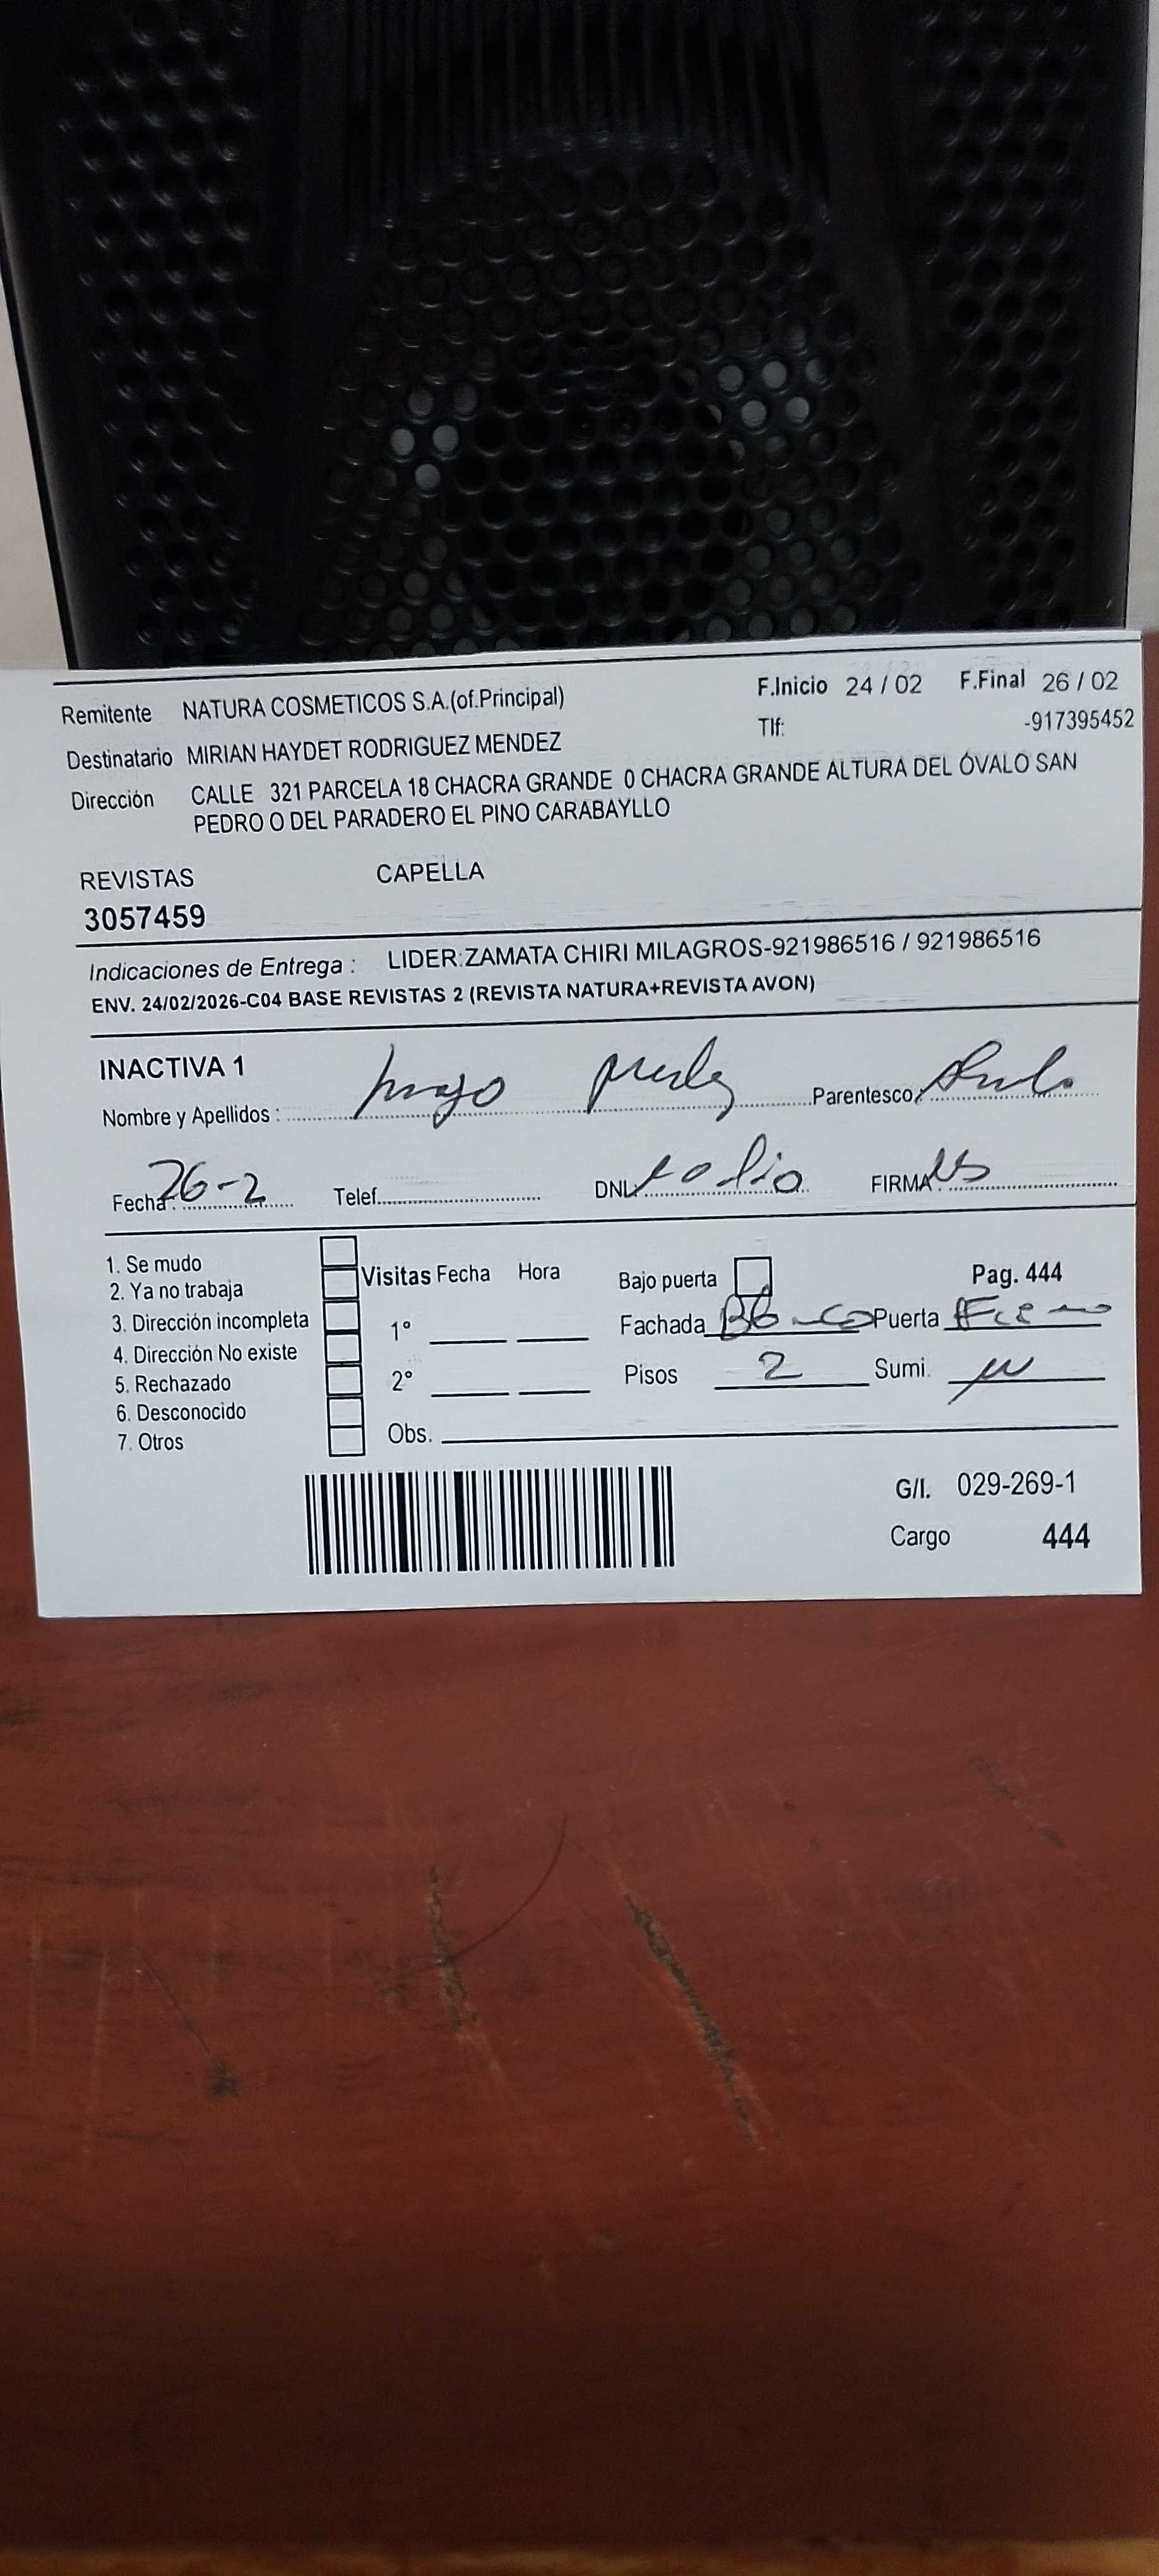 Remitente NATURA COSMETICOS S.A.(of.Principal) F.Inicio 24 / 02 F.Final 26 / 02
Tlf: -917395452
Destinatario MIRIAN HAYDET RODRIGUEZ MENDEZ
Dirección CALLE 321 PARCELA 18 CHACRA GRANDE 0 CHACRA GRANDE ALTURA DEL ÓVALO SAN
PEDRO O DEL PARADERO EL PINO CARABAYLLO
REVISTAS CAPELLA
3057459
Indicaciones de Entrega : LIDER:ZAMATA CHIRI MILAGROS-921986516 / 921986516
ENV. 24/02/2026-C04 BASE REVISTAS 2 (REVISTA NATURA+REVISTA AVON)
INACTIVA 1
Nombre y Apellidos : Parentesco
Fecha: 26-2 Telef. DNI. FIRMA
1. Se mudo
2. Ya no trabaja
3. Dirección incompleta
4. Dirección No existe
5. Rechazado
6. Desconocido
7. Otros
Visitas Fecha Hora
1°
2°
Obs.
Bajo puerta Pag. 444
Fachada Puerta
Pisos 2 Sumi.
G/I. 029-269-1
Cargo 444